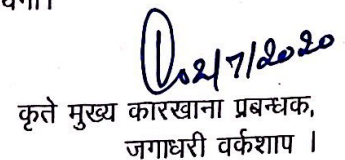 02/7/2020
कृते मुख्य कारखाना प्रबन्धक,
जगाधरी वर्कशाप ।